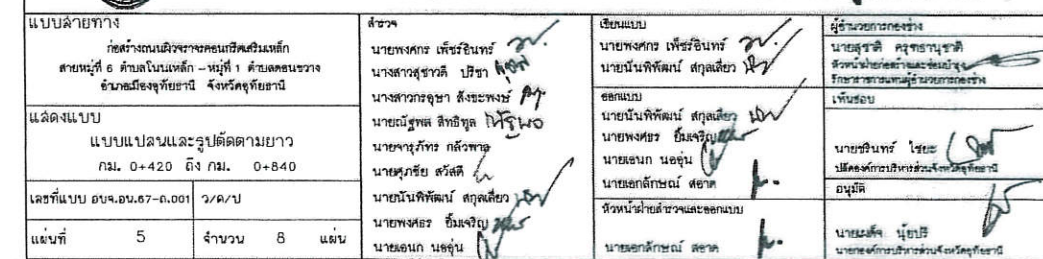 แบบลายทาง
ก่อสร้างถนนผิวจราจรคอนกรีตเสริมเหล็ก
สายหมู่ที่ 6 ตำบลโนนเหล็ก - หมู่ที่ 1 ตำบลดอนขวาง
อำเภอเมืองอุทัยธานี จังหวัดอุทัยธานี
แสดงแบบ
แบบแปลนและรูปตัดตามยาว
กม. 0+420 ถึง กม. 0+840
เลขที่แบบ อบจ.อน.67-ถ.001 ว/ด/ป
แผ่นที่ 5 จำนวน 8 แผ่น
สำรวจ
นายพงศกร เพ็ชร์อินทร์
นางสาวสุชาวดี ปริชา
นางสาวกรอุษา สังขะพงษ์
นายณัฐพล สิทธิทูล
นายจารุภัทร กลัวพาล
นายศุภชัย สวัสดี
นายนันพิพัฒน์ สกุลเสียว
นายพงศธร ยิ้มเจริญ
นายเอนก นออุ่น
เขียนแบบ
นายพงศกร เพ็ชร์อินทร์
นายนันพิพัฒน์ สกุลเสียว
ออกแบบ
นายนันพิพัฒน์ สกุลเสียว
นายพงศธร ยิ้มเจริญ
นายเอนก นออุ่น
นายเอกลักษณ์ สอาด
หัวหน้าฝ่ายสำรวจและออกแบบ
นายเอกลักษณ์ สอาด
ผู้อำนวยการกองช่าง
นายสุชาติ ครุฑธานุชาติ
หัวหน้าฝ่ายก่อสร้างและซ่อมบำรุง
รักษาราชการแทนผู้อำนวยการกองช่าง
เห็นชอบ
นายชรินทร์ ไชยะ
ปลัดองค์การบริหารส่วนจังหวัดอุทัยธานี
อนุมัติ
นายเผด็จ นุ้ยปรี
นายกองค์การบริหารส่วนจังหวัดอุทัยธานี